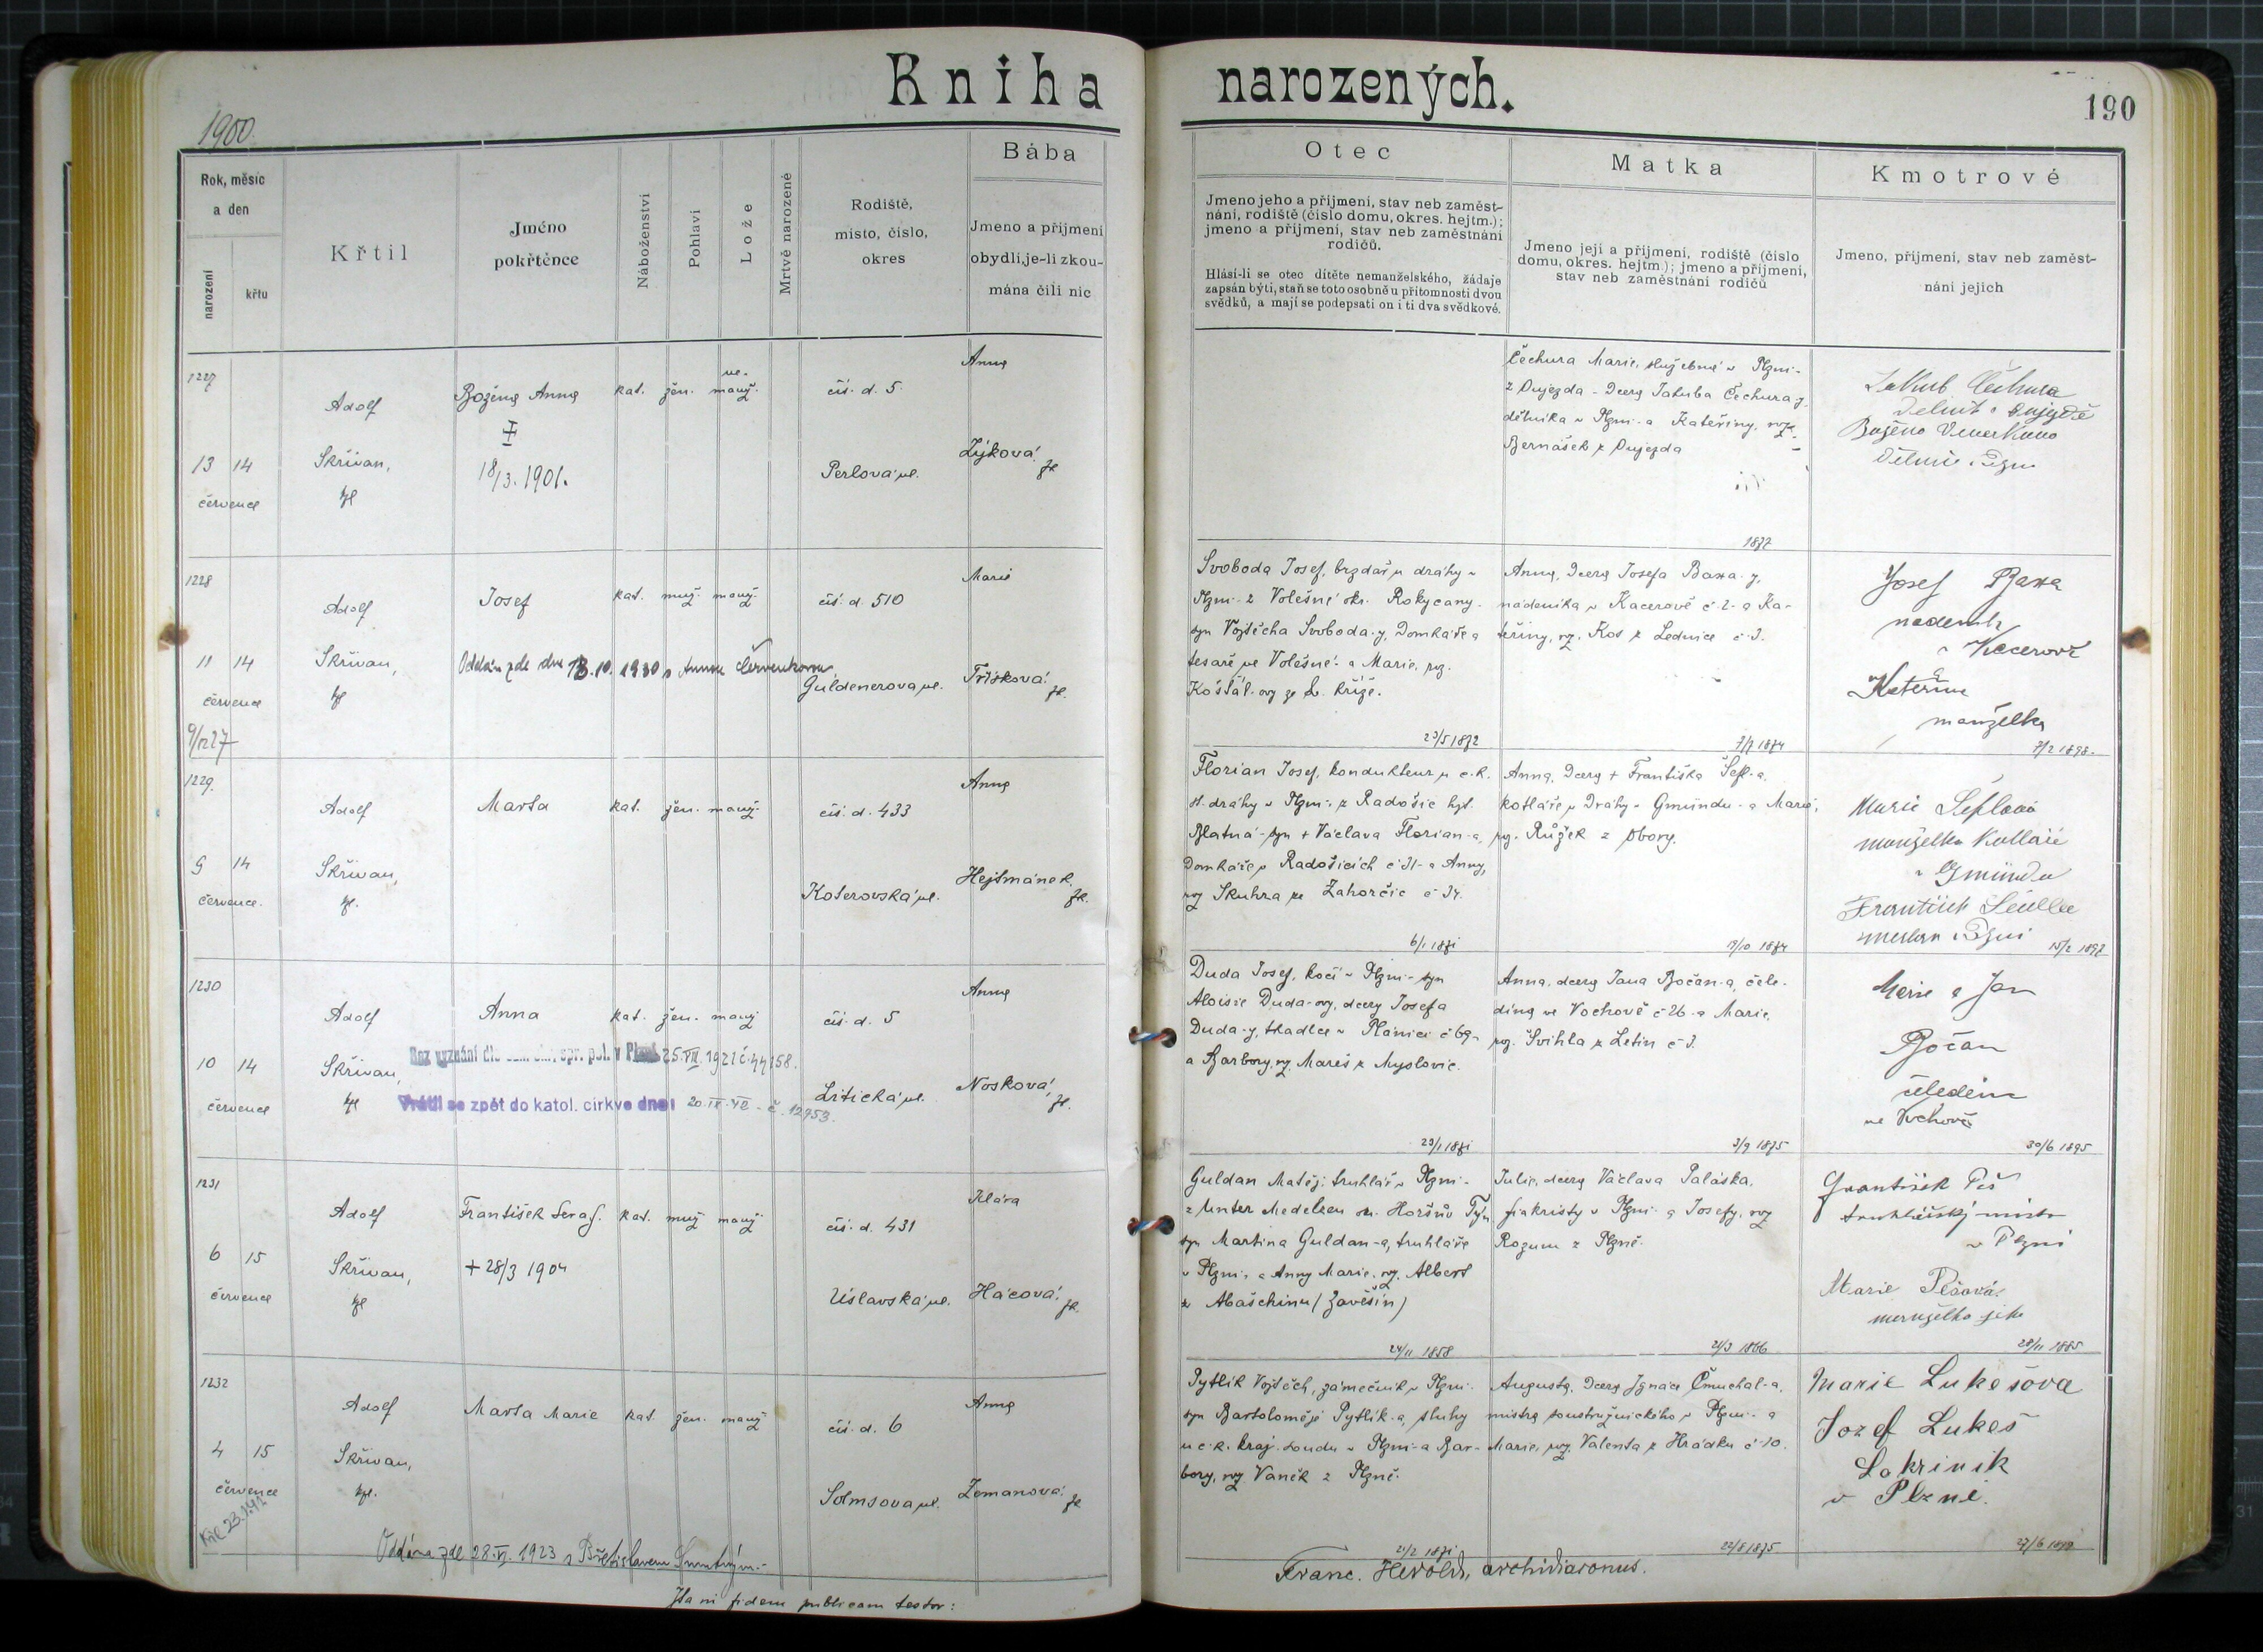 Kniha narozených.
190
1900.
Rok, měsíc
a den
narození
křtu
Křtil
Jméno
pokřtěnce
Náboženství
Pohlaví
Lože
Mrtvě narozené
Rodiště,
místo, číslo,
okres
Bába
Jmeno a přijmení
obydlí, je-li zkou-
mána čili nic
Otec
Jmeno jeho a přijmení, stav neb zaměst-
nání, rodiště (číslo domu, okres. hejtm.);
jmeno a přijmení, stav neb zaměstnání
rodičů.
Hlásí-li se otec dítěte nemanželského, žádaje
zapsán býti, staň se toto osobně u přítomnosti dvou
svědků, a mají se podepsati on i ti dva svědkové.
Matka
Jmeno její a přijmení, rodiště (číslo
domu, okres. hejtm.); jmeno a přijmení,
stav neb zaměstnání rodičů
Kmotrové
Jméno, přijmení, stav neb zaměst-
nání jejich
1227
13 14
července
Adolf
Skřivan,
Božena Anna
18/3. 1901.
kat. žen. ne-
manž.
čís. d. 5
Perlová ul.
Anna
Zýková
Čechura Marie, služebná v Plzni-
z Dujezda - dcera Jakuba Čechura-y,
dělníka v Plzni a Kateřiny, roz.
Bernášek z Dujezda
1877
Jakub Čechura
Božena
1228
11 14
července
9/12 27
Adolf
Skřivan,
Josef
Oddán zde dne 18.10.1930 s Annou Červenkovou
kat. muž. manž.
čís. d. 510
Guldenerova ul.
Marie
Tříšková
Svoboda Josef, brzdař u dráhy v
Plzni - z Volešné okr. Rokycany -
syn Vojtěcha Svoboda-y, domkáře a
tesaře ve Volešné - a Marie, roz.
Košťál-ovy ze Sv. Kříže.
23/5 1872
Anna, dcera Josefa Baxa-y,
nádeníka v Kacerově č. 2 - a Ka-
teřiny, roz. Kos z Lednice č. 3.
7/7 1874
Josef Baxa
nádeník
v Kacerově
Kateřina
manželka
7/2 1898.
1229.
9 14
července.
Adolf
Skřivan,
Marta
kat. žen. manž.
čís. d. 433
Koterovská ul.
Anna
Hejtmánek
Florian Josef, kondukteur u c.k.
st. dráhy v Plzni - z Radošic hejt.
Blatná - syn + Václava Florian-a,
domkáře v Radošicích č. 31 - a Anny,
roz. Skuhra ze Zahorčic č. 34.
6/1 1871
Anna, dcera + Františka Šefl-a,
kotláře u dráhy v Gmündu - a Marie,
roz. Růžek z Obory.
19/10 1874
Marie Šeflová
manželka kotláře
v Gmündu
František
v Plzni 15/2 1897
1230
10 14
července
Adolf
Skřivan,
Anna
kat. žen. manž.
Bez vyznání dle ozn. okr. spr. pol. v Plzni 25.VIII.1921 č. 44158.
Vrátil se zpět do katol. církve dne: 20.IX.42 - č. 12953.
čís. d. 5
Litická ul.
Anna
Nosková
Duda Josef, kočí v Plzni - syn
Aloisie Duda-ovy, dcery Josefa
Duda-y, tkadlce v Plánici č. 69 -
a Barbory, roz. Mareš z Myslovic.
29/1 1871
Anna, dcera Jana Bočan-a, čele-
dína ve Vochově č. 26 - a Marie,
roz. Švihla z Letin č. 3.
3/9 1875
Marie a Jan
Bočan
čeledín
ve Vochově
30/6 1895
1231
6 15
července
Adolf
Skřivan,
František Seraf.
+ 28/3 1904
kat. muž. manž.
čís. d. 431
Úslavská ul.
Klára
Hácová
Guldan Matěj, truhlář v Plzni -
z Unter Medelzen ok. Horšův Týn,
syn Martina Guldan-a, truhláře
v Plzni - a Anny Marie, roz. Albert
z Abaschinu (Zavěšín)
24/11 1858
Julie, dcera Václava Paláska,
fiakristy v Plzni a Josefy, roz.
Rozum z Plzně.
21/3 1866
František Peš
truhlářský mistr
v Plzni
Marie Pešová
manželka jeho
28/11 1885
1232
4 15
července
Adolf
Skřivan,
Marta Marie
kat. žen. manž.
čís. d. 6
Solmsova ul.
Anna
Zemanová
Pytlík Vojtěch, zámečník v Plzni -
syn Bartoloměje Pytlík-a, sluhy
u c.k. kraj. soudu v Plzni - a Bar-
bory, roz. Vaněk z Plzně.
21/2 1871
Augusta, dcera Ignáce Čmuchal-a,
mistra soustružnického v Plzni - a
Marie, roz. Valenta z Hrádku č. 10.
22/8 1875
Marie Lukešova
Jozef Lukeš
Lakrinik
v Plzni.
Oddána zde 28.VI.1923 s Břetislavem
Ita ni fidem publicam testor:
Franc. Herold, archidiaconus.